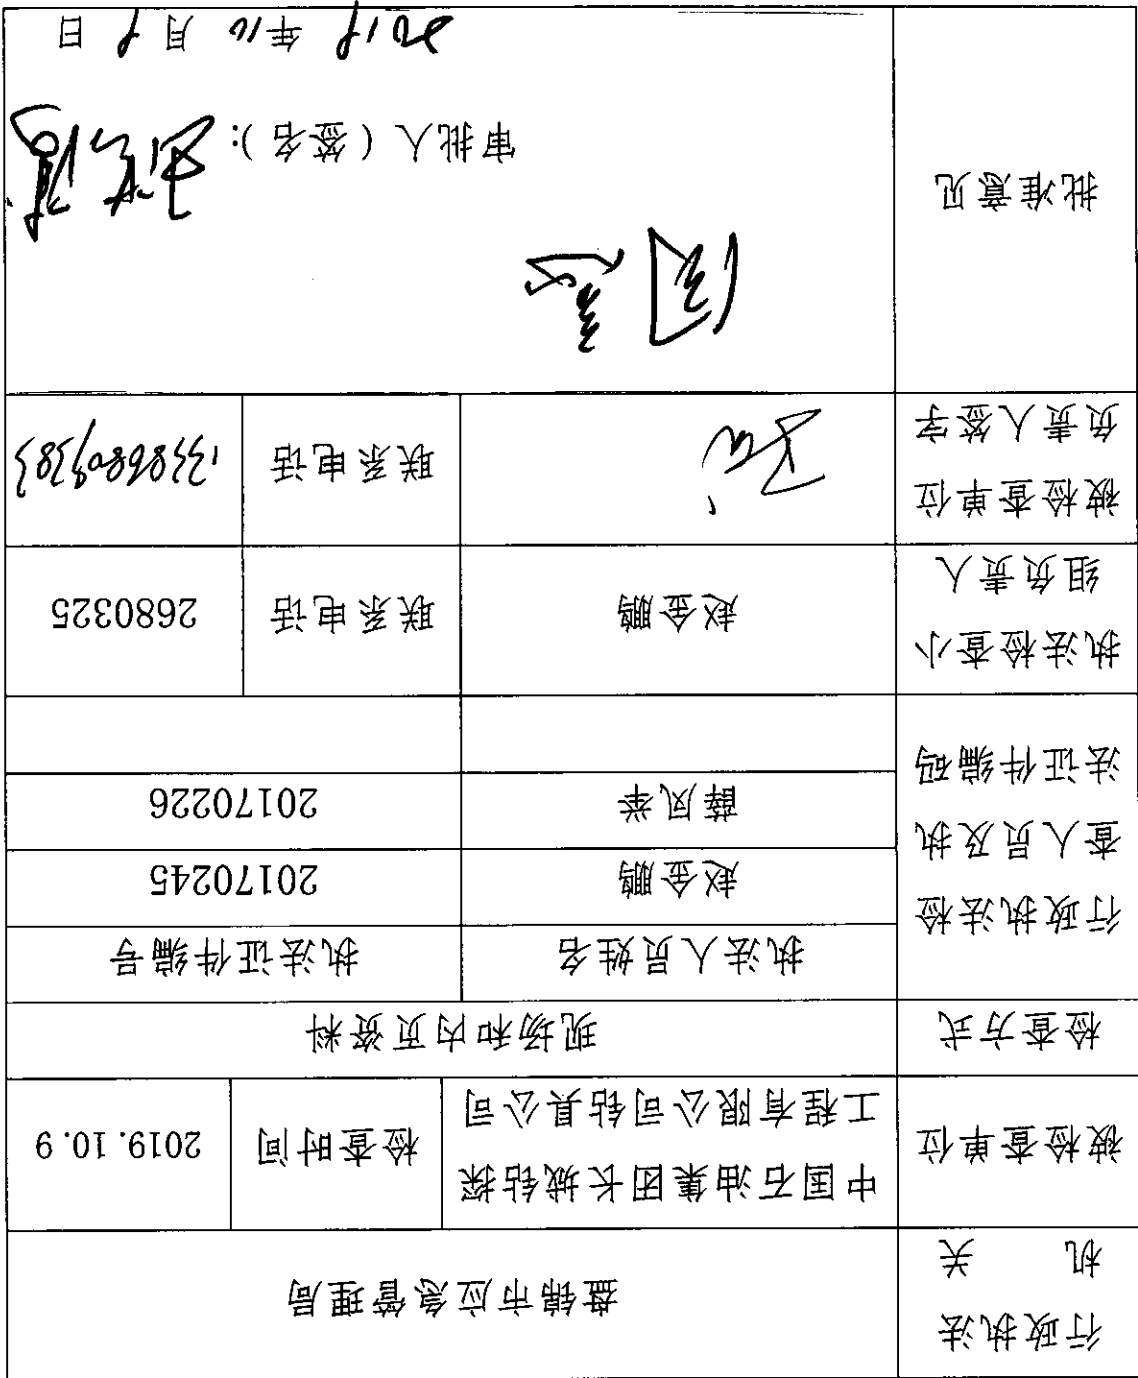 行政执法
机 关
盘锦市应急管理局
被检查单位
中国石油集团长城钻探
工程有限公司钻具公司
检查时间
2019.10.9
检查方式
现场和内页资料
行政执法检
查人员及执
法证件编码
执法人员姓名
执法证件编号
赵金鹏
20170245
薛凤举
20170226
执法检查小
组负责人
赵金鹏
联系电话
2680325
被检查单位
负责人签字
联系电话
13386809383
批准意见
同意
审批人（签名）：
年10月8日